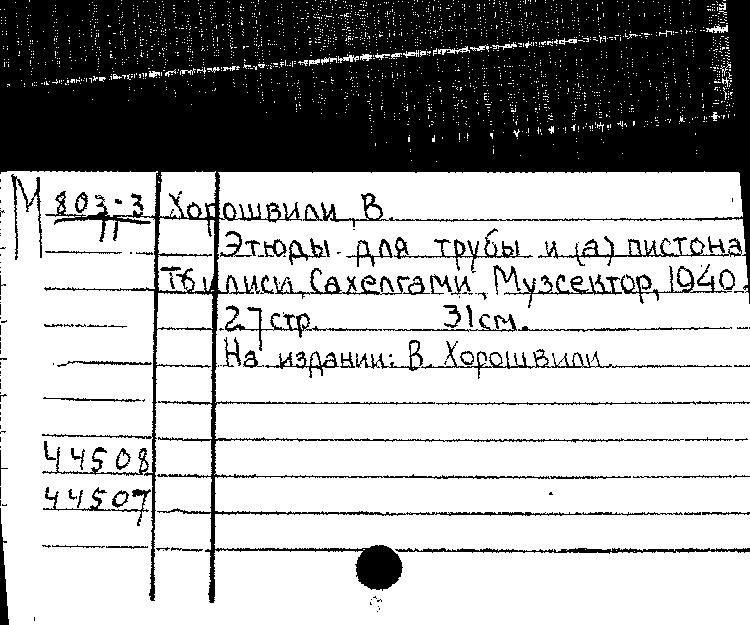 М 803-3 Хорошвили, В.
11
Этюды для трубы и (а) пистона
Тбилиси, Сахелгами, Музсектор, 1940.
27 стр. 31 см.
На издании: В. Хорошвили
44508
44507